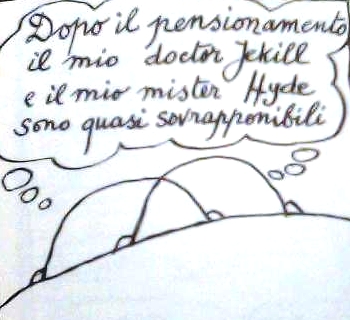 Dopo il pensionamento
il mio doctor Jekill
e il mio mister Hyde
sono quasi sovrapponibili